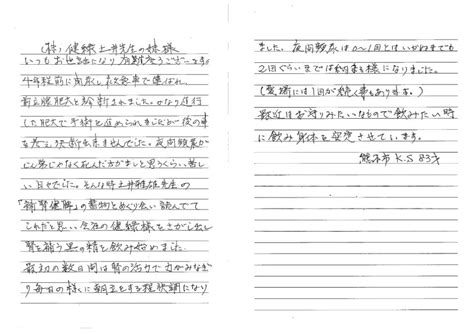 (株)健康土井先生の妹様
いつもお世話になり有難うございます。
4年程前に尿閉し救急車で運ばれ、
前立腺肥大と診断されました。かなり進行
した肥大で手術と進められましたが後の事
を考え決断出来ませんでした。夜間頻尿が
しん苦しくなく死んだ方がましと思うくらい苦し
い日々でした。そんな時土井雅雄先生の
「補腎健脾」の書物とめぐり会い読んでて
これだと思い、会社の健康様をさがし出し
腎を補う黒の精を飲み始めました。
最初の数日間は腎の活力で力がみなぎ
り毎日の様に朝立をする程快調になり
ました。夜間頻尿は0〜1回とはいかねますも
2回ぐらいまでは納まる様になりました。
(夏場には1回が続く事もあります。)
最近はお守りみたいなもので飲みたい時
に飲み身体を安定させています。
熊本市 K.S 83才